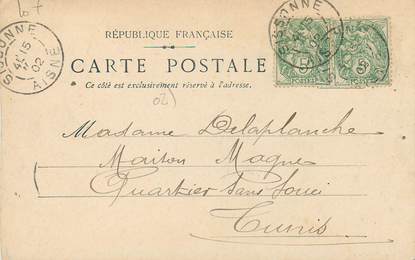 6 f
RÉPUBLIQUE FRANÇAISE
CARTE POSTALE
Ce côté est exclusivement réservé à l'adresse.
SISSONNE
15
02
AISNE
SISSONNE
15
02
5
5
02)
Madame Delaplanche
Maison Magne
Quartier Sans Souci
Tunis